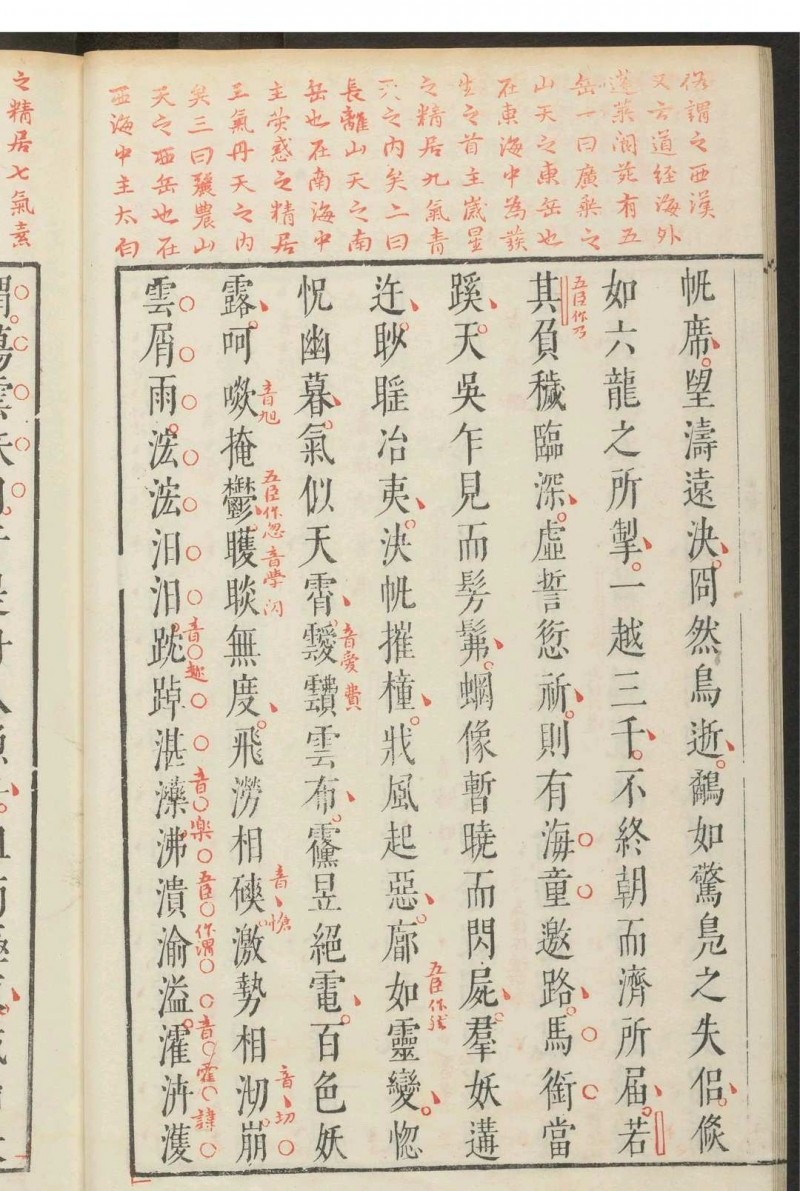 俗謂之西漢
又云道經海外
蓬萊閬苑有五
岳一曰廣乘之
山天之東岳也
在東海中為發
生之首主歲星
之精居九氣青
天之內矣二曰
長離山天之南
岳也在南海中
主熒惑之精居
三氣丹天之內
矣三曰麗農山
天之西岳也在
西海中主太白
帆席望濤遠決冏然鳥逝鷸如驚鳧之失侶倐
如六龍之所掣一越三千不終朝而濟所届若
五臣作乃
其負穢臨深虛誓愆祈則有海童邀路馬銜當
蹊天吳乍見而髣髴蝄像暫曉而閃屍羣妖遘
五臣作
迕眇䁘冶夷決帆摧橦戕風起惡廓如靈變惚
音愛 費
怳幽暮氣似天霄靉靅雲布䨴昱絕電百色妖
音旭 五臣作忽 音學 閃 音愴 音切
露呵㰲掩鬱矆睒無度飛澇相磢激勢相沏崩
音趂 音樂 五臣作渭 音霍 諱
雲屑雨浤浤汩汩踸踔湛藻沸潰渝溢濯泋濩
之精居七氣素